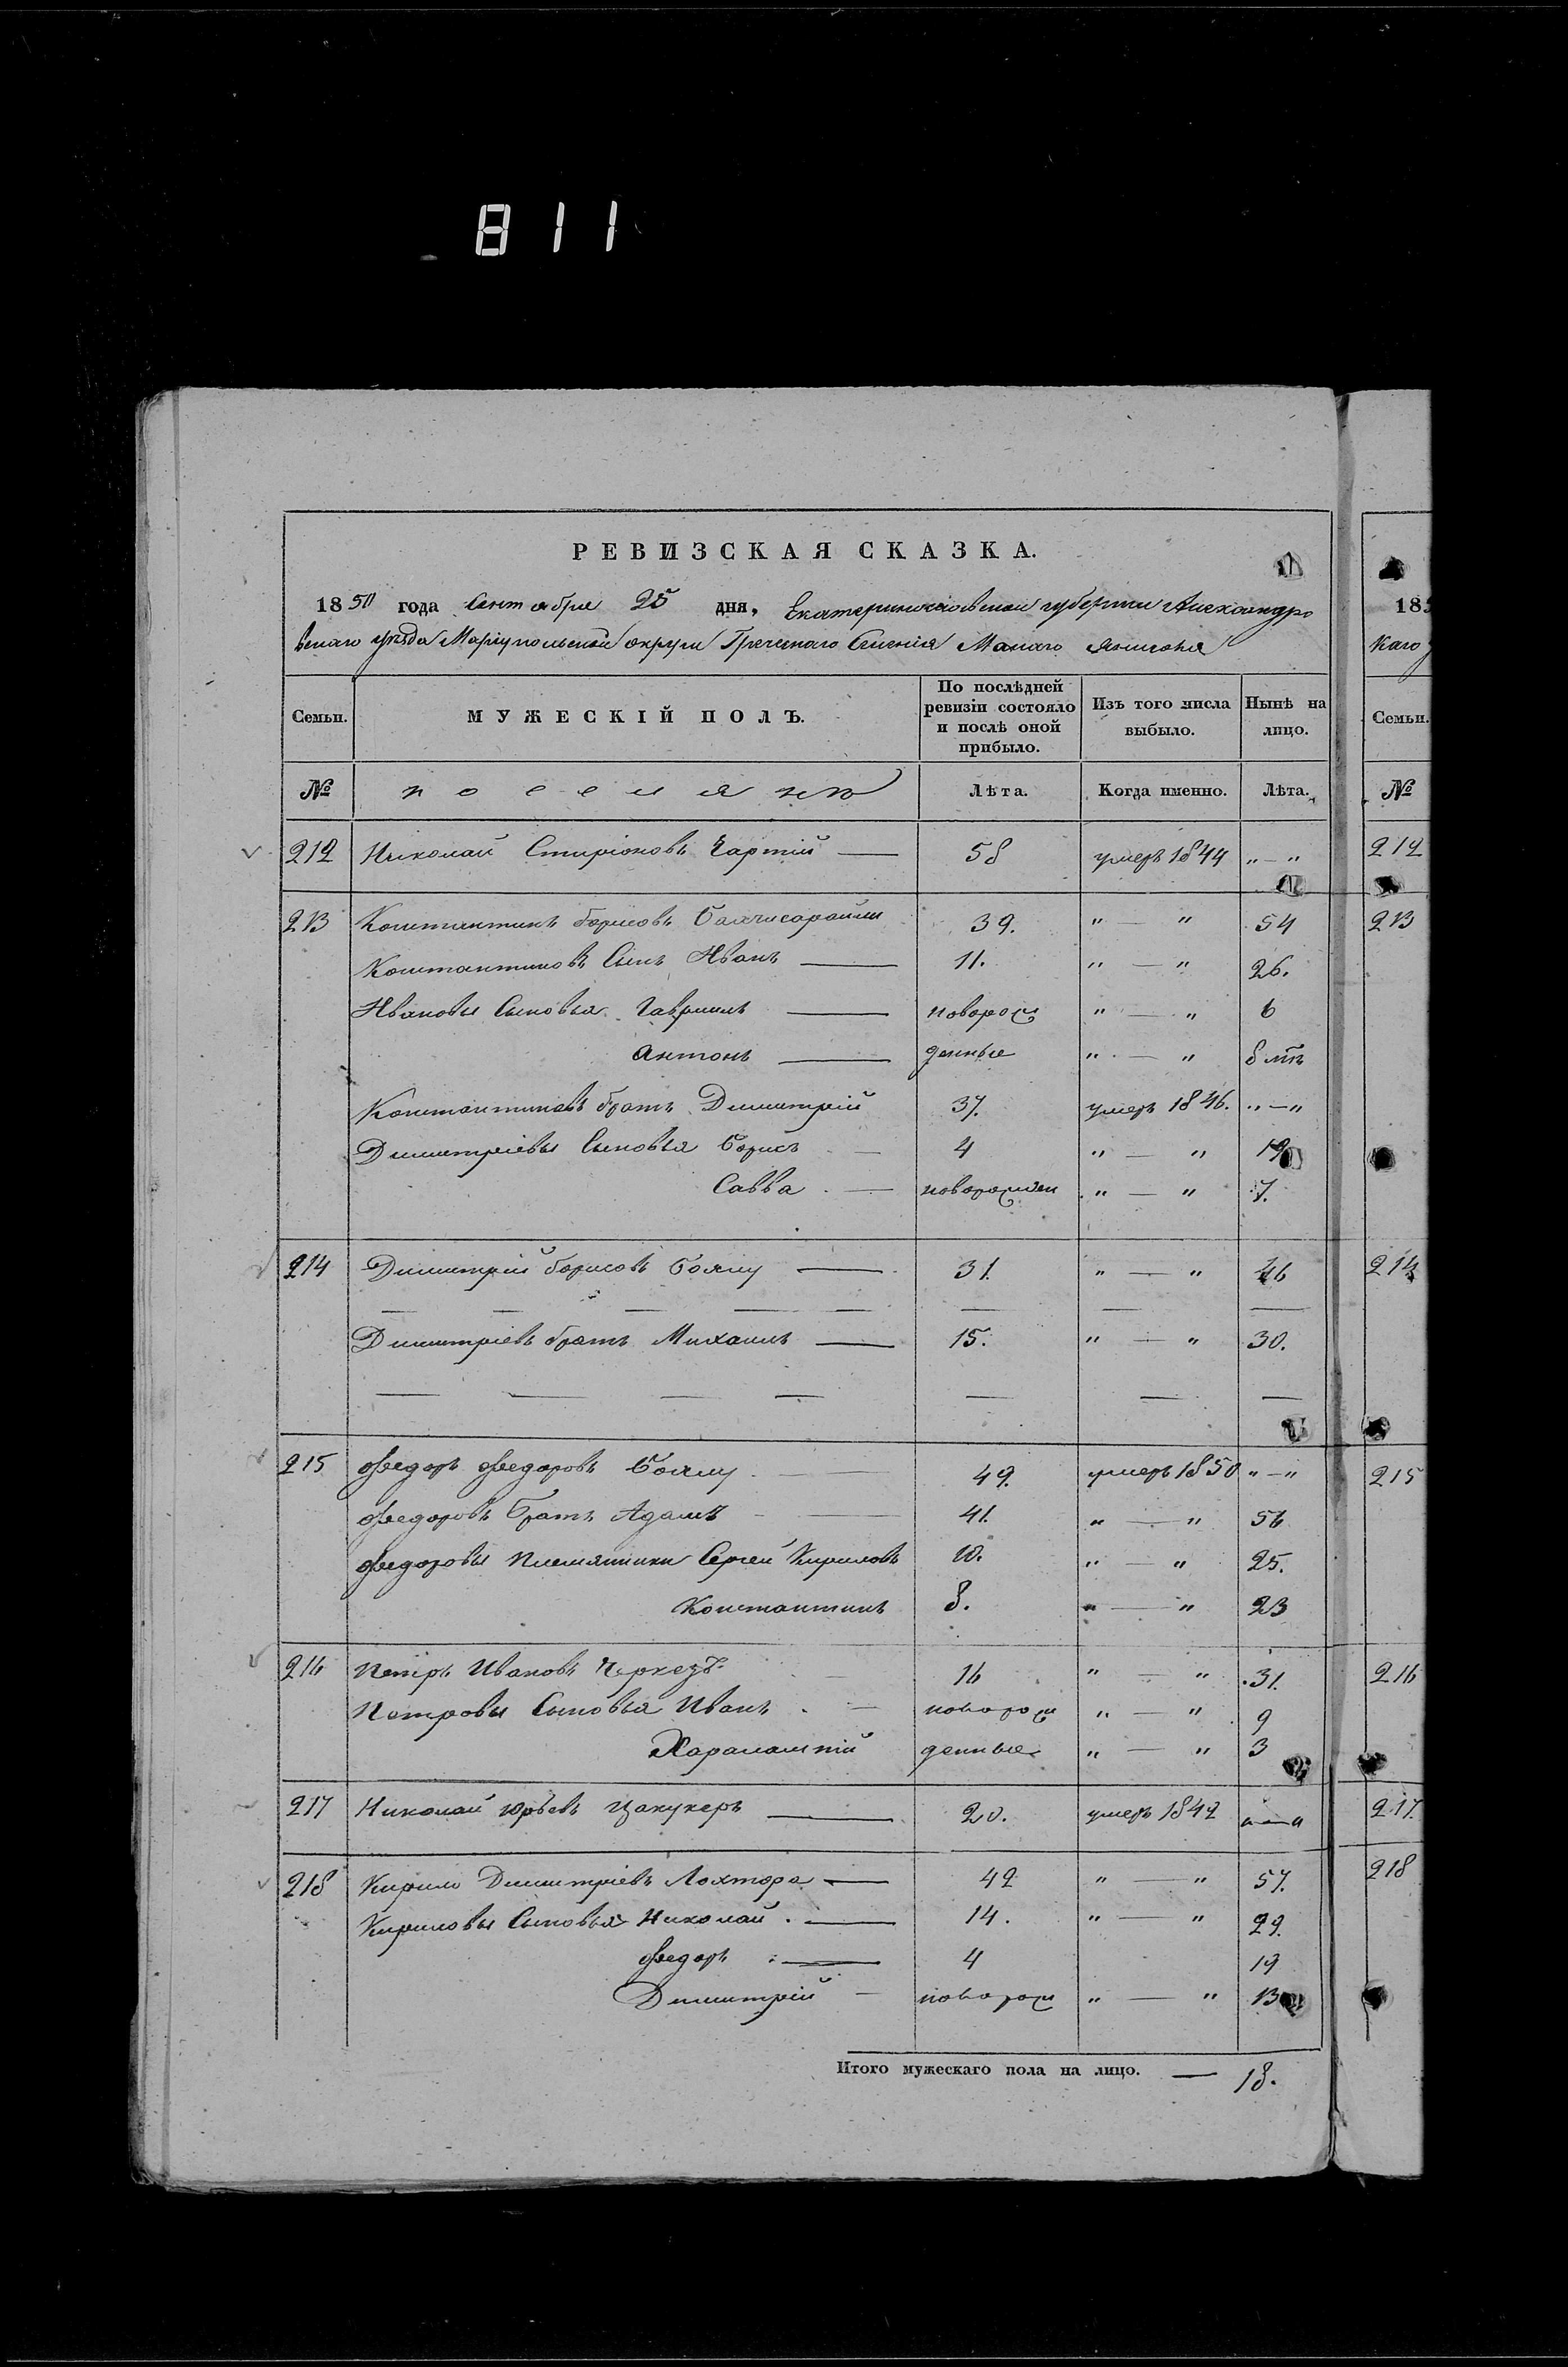 811
РЕВИЗСКАЯ СКАЗКА.
1850 года Сентября 25 дня, Екатеринославской губернии Александро
вскаго уѣзда Маріупольской округи Греческаго Селенія Малаго Янисоля
Семьи. МУЖЕСКІЙ ПОЛЪ. По послѣдней ревизіи состояло и послѣ оной прибыло. Изъ того числа выбыло. Нынѣ на лицо.
№ поселянъ Лѣта. Когда именно. Лѣта.
212 Николай Спиріоновъ Чартій — 58 умеръ 1844 „ — „
213 Константинъ Борисовъ Бахчисарайли 39. „ — „ 54
Константиновъ Сынъ Иванъ — 11. „ — „ 26.
Ивановы Сыновья Гавріилъ — новорож „ — „ 6
Антонъ — денные „ — „ 8 мѣ
Константиновъ братъ Димитрій 37. умеръ 1846. „ — „
Димитріевы Сыновья Борисъ — 4 „ — „ 19
Савва — новорожден „ — „ 7.
214 Димитрій Борисовъ Бояжи — 31. „ — „ 46
Димитріевъ братъ Михаилъ — 15. „ — „ 30.
215 Федоръ Федоровъ Бояжи — 49. умеръ 1850 „ — „
Федоровъ Братъ Адамъ — 41. „ — „ 56
Федоровы племянники Сергей Кириловъ 10. „ — „ 25.
Константинъ 8. „ — „ 23
216 Петръ Ивановъ Черкезъ — 16 „ — „ 31.
Петровы Сыновья Иванъ — новорож „ — „ 9
Харалампій денные „ — „ 3
217 Николай Юрьевъ Цакукеръ — 20. умеръ 1842 „ — „
218 Кирило Димитріевъ Лохтора — 42 „ — „ 57.
Кириловы Сыновья Николай — 14. „ — „ 29.
Федоръ — 4 19
Димитрій — новорож „ — „ 13
Итого мужескаго пола на лицо. — 18.
185
каго
Семьи.
№
212
213
214
215
216
217.
218